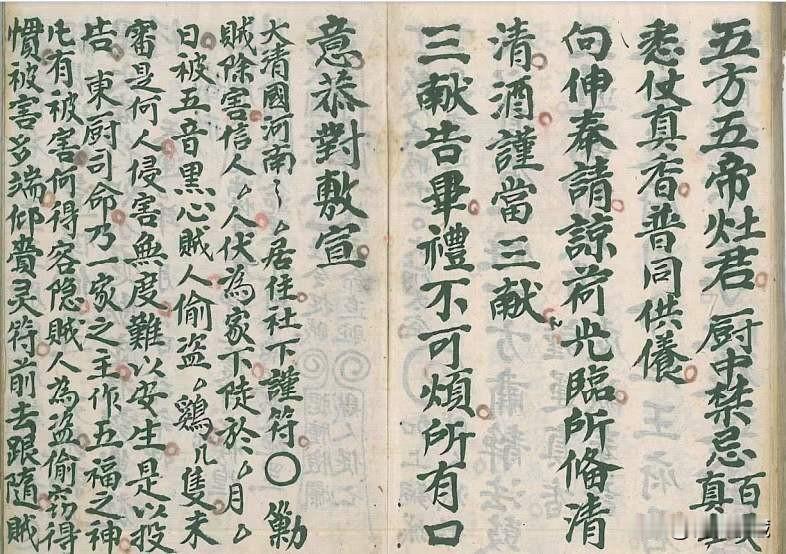 五方五帝灶君厨中禁忌百灵真
悉仗真香普同供養
向伸奉請諒荷光臨所俻清
清酒謹當三献
三献告畢禮不可煩所有口
意恭對敷宣
大清國河南〻居住社下謹符〇勦
賊除害信人〻人伏為家下陡於〻月〻
日被五音黑心賊人偷盗〻鷄几隻未
審是何人侵害無度難以安生是以投
告東厨司命乃一家之主作五福之神
凡有被害何得容隐賊人為盗偷窃得
慣被害多端仰賫灵符前去跟隨賊